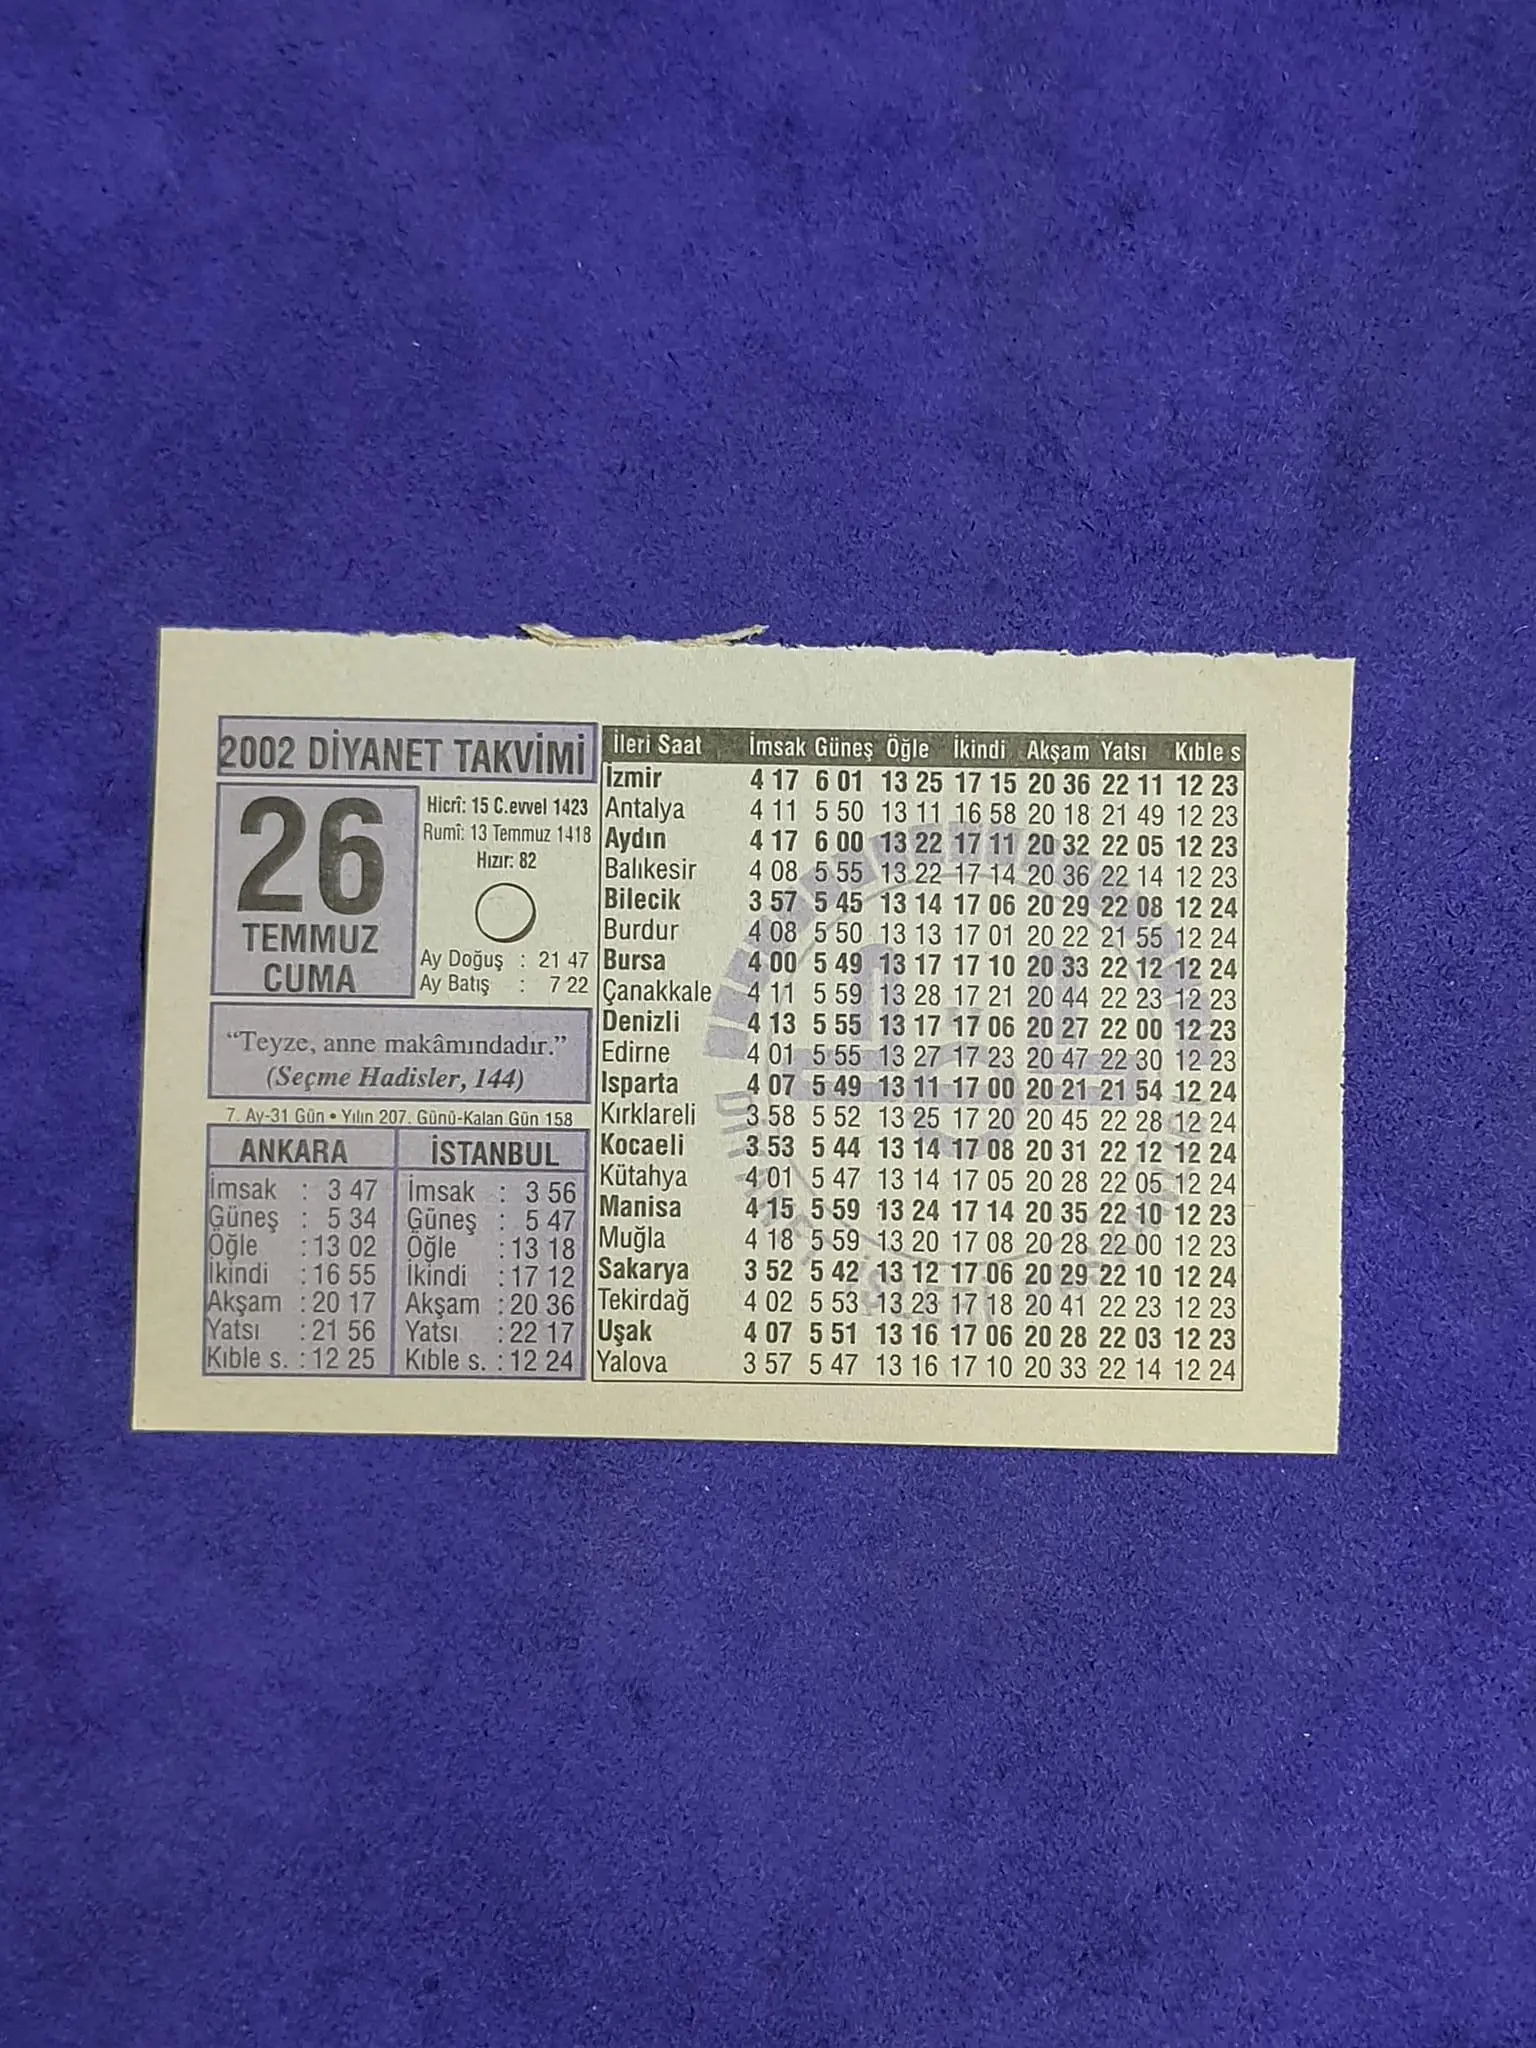 2002 DİYANET TAKVİMİ
26
TEMMUZ
CUMA
Hicrî: 15 C.evvel 1423
Rumî: 13 Temmuz 1418
Hızır: 82
Ay Doğuş : 21 47
Ay Batış : 7 22
“Teyze, anne makâmındadır.”
(Seçme Hadisler, 144)
7. Ay-31 Gün • Yılın 207. Günü-Kalan Gün 158
ANKARA
İmsak : 3 47
Güneş : 5 34
Öğle : 13 02
İkindi : 16 55
Akşam : 20 17
Yatsı : 21 56
Kıble s. : 12 25
İSTANBUL
İmsak : 3 56
Güneş : 5 47
Öğle : 13 18
İkindi : 17 12
Akşam : 20 36
Yatsı : 22 17
Kıble s. : 12 24
İleri Saat İmsak Güneş Öğle İkindi Akşam Yatsı Kıble s
İzmir 4 17 6 01 13 25 17 15 20 36 22 11 12 23
Antalya 4 11 5 50 13 11 16 58 20 18 21 49 12 23
Aydın 4 17 6 00 13 22 17 11 20 32 22 05 12 23
Balıkesir 4 08 5 55 13 22 17 14 20 36 22 14 12 23
Bilecik 3 57 5 45 13 14 17 06 20 29 22 08 12 24
Burdur 4 08 5 50 13 13 17 01 20 22 21 55 12 24
Bursa 4 00 5 49 13 17 17 10 20 33 22 12 12 24
Çanakkale 4 11 5 59 13 28 17 21 20 44 22 23 12 23
Denizli 4 13 5 55 13 17 17 06 20 27 22 00 12 23
Edirne 4 01 5 55 13 27 17 23 20 47 22 30 12 23
Isparta 4 07 5 49 13 11 17 00 20 21 21 54 12 24
Kırklareli 3 58 5 52 13 25 17 20 20 45 22 28 12 24
Kocaeli 3 53 5 44 13 14 17 08 20 31 22 12 12 24
Kütahya 4 01 5 47 13 14 17 05 20 28 22 05 12 24
Manisa 4 15 5 59 13 24 17 14 20 35 22 10 12 23
Muğla 4 18 5 59 13 20 17 08 20 28 22 00 12 23
Sakarya 3 52 5 42 13 12 17 06 20 29 22 10 12 24
Tekirdağ 4 02 5 53 13 23 17 18 20 41 22 23 12 23
Uşak 4 07 5 51 13 16 17 06 20 28 22 03 12 23
Yalova 3 57 5 47 13 16 17 10 20 33 22 14 12 24